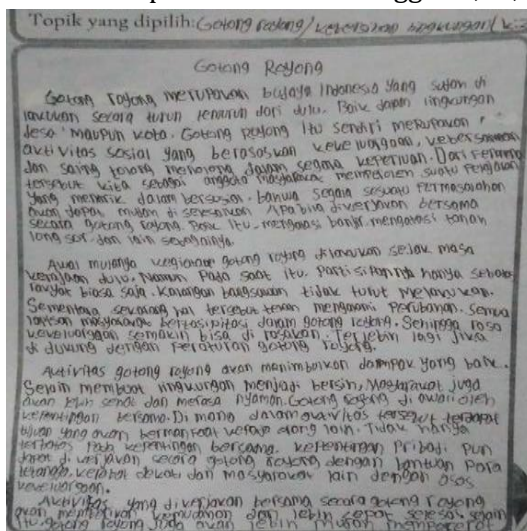 Topik yang dipilih: Gotong royong/ kebersihan bagungan/
Gotong Royong
Gotong royong merupakan budaya Indonesia yang sudah di
lakukan secara turun temurun dari dulu. Baik dalam lingkungan
desa maupun kota. Gotong royong itu sendiri merupakan
aktivitas sosial yang berasaskan kekeluargaan, kebersamaan
dan saling tolong menolong dalam segala keperluan. Dari
tersebut kita sebagai anggota masyarakat memperoleh suatu
yang menarik dalam bersosan. bahwa segala sesuatu Permasalahan
akan dapat mudah di selesaikan APabila dikerjakan bersama
secara gotong royong. Baik itu mengatasi banjir, mengatasi tanah
long sor. dan lain sebagainya.
Awal mulanya kegiatan gotong royong dilakukan sejak masa
kerajaan dulu. Namun Pada saat itu. Partisipannya hanya sebatas
rakyat biasa saja. Kalangan bangsawan tidak turut melakukan.
Sementara sekarang hal tersebut telah mengalami Perubahan. Semua
lapisan masyarakat bertasipitasi dalam gotong royong. Sehingga rasa
kekeluargaan semakin bisa di rasakan. Terlebih lagi jika
di dukung dengan Peraturan gotong royong.
Aktivitas gotong royong akan menimbulkan dampak yang baik.
Selain membuat lingkungan menjadi bersih, Masyarakat juga
akan lebih sehat dan merasa nyaman. Gotong royong di awali oleh
kepentingan bersama. Di mana dalam aktivitas tersebut terdapat
tujuan yang akan bermanfaat kepada orang lain. Tidak hanya
terbatas Pada kepentingan bersama. kepentingan Pribadi pun
dapat di kerjakan secara gotong royong dengan bantuan Para
tetangga, kerabat dekat dan masyarakat lain dengan asas
kekeluargaan.
Aktivitas yang dikerjakan bersama secara gotong royong
akan memberikan kemudahan dan lebih cepat selesai. selain
itu. gotong royong juga akan lebih